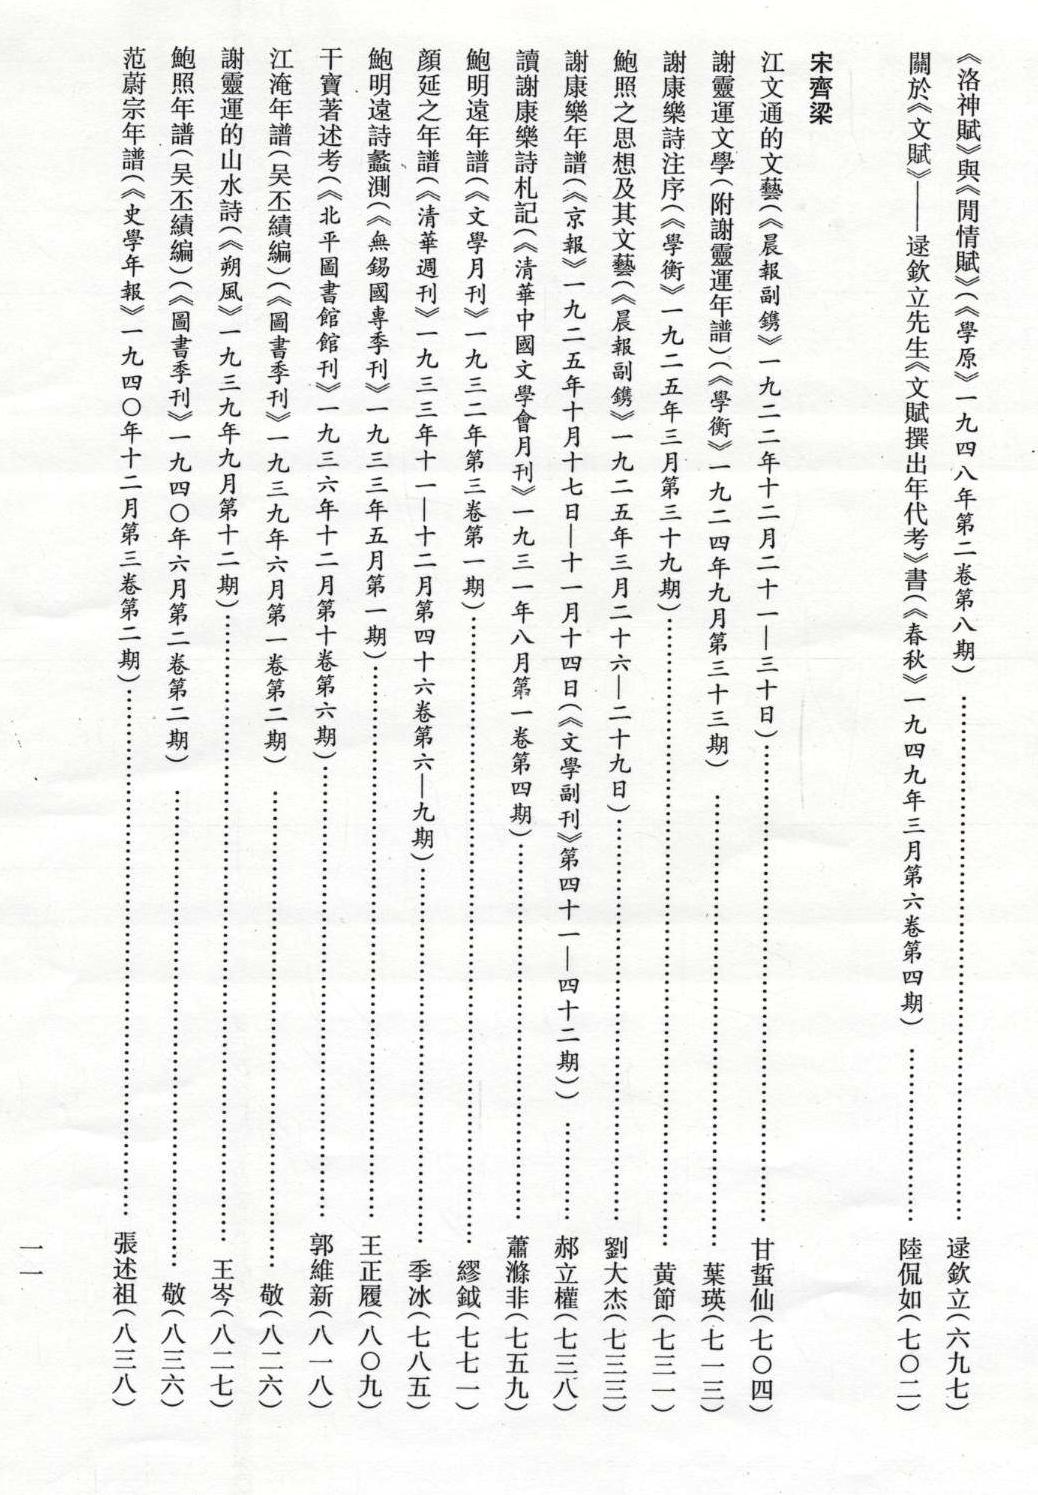 《洛神賦》與《閒情賦》(《學原》一九四八年第二卷第八期)……逯欽立(六九七)
關於《文賦》——逯欽立先生《文賦撰出年代考》書(《春秋》一九四九年三月第六卷第四期)……陸侃如(七〇二)
宋齊梁
江文通的文藝(《晨報副鐫》一九二二年十二月二十一—三十日)……甘蜇仙(七〇四)
謝靈運文學(附謝靈運年譜)(《學衡》一九二四年九月第三十三期)……葉瑛(七一三)
謝康樂詩注序(《學衡》一九二五年三月第三十九期)……黄節(七三一)
鮑照之思想及其文藝(《晨報副鐫》一九二五年三月二十六—二十九日)……劉大杰(七三三)
謝康樂年譜(《京報》一九二五年十月十七日—十一月十四日(《文學副刊》第四十一—四十二期))……郝立權(七三八)
讀謝康樂詩札記(《清華中國文學會月刊》一九三一年八月第一卷第四期)……蕭滌非(七五九)
鮑明遠年譜(《文學月刊》一九三二年第三卷第一期)……繆鉞(七七一)
顔延之年譜(《清華週刊》一九三三年十一—十二月第四十六卷第六—九期)……季冰(七八五)
鮑明遠詩蠡測(《無錫國專季刊》一九三三年五月第一期)……王正履(八〇九)
干寶著述考(《北平圖書館館刊》一九三六年十二月第十卷第六期)……郭維新(八一八)
江淹年譜(吴丕績編)(《圖書季刊》一九三九年六月第一卷第二期)……敬(八二六)
謝靈運的山水詩(《朔風》一九三九年九月第十二期)……王岑(八二七)
鮑照年譜(吴丕績編)(《圖書季刊》一九四〇年六月第二卷第二期)……敬(八三六)
范蔚宗年譜(《史學年報》一九四〇年十二月第三卷第二期)……張述祖(八三八)
一一